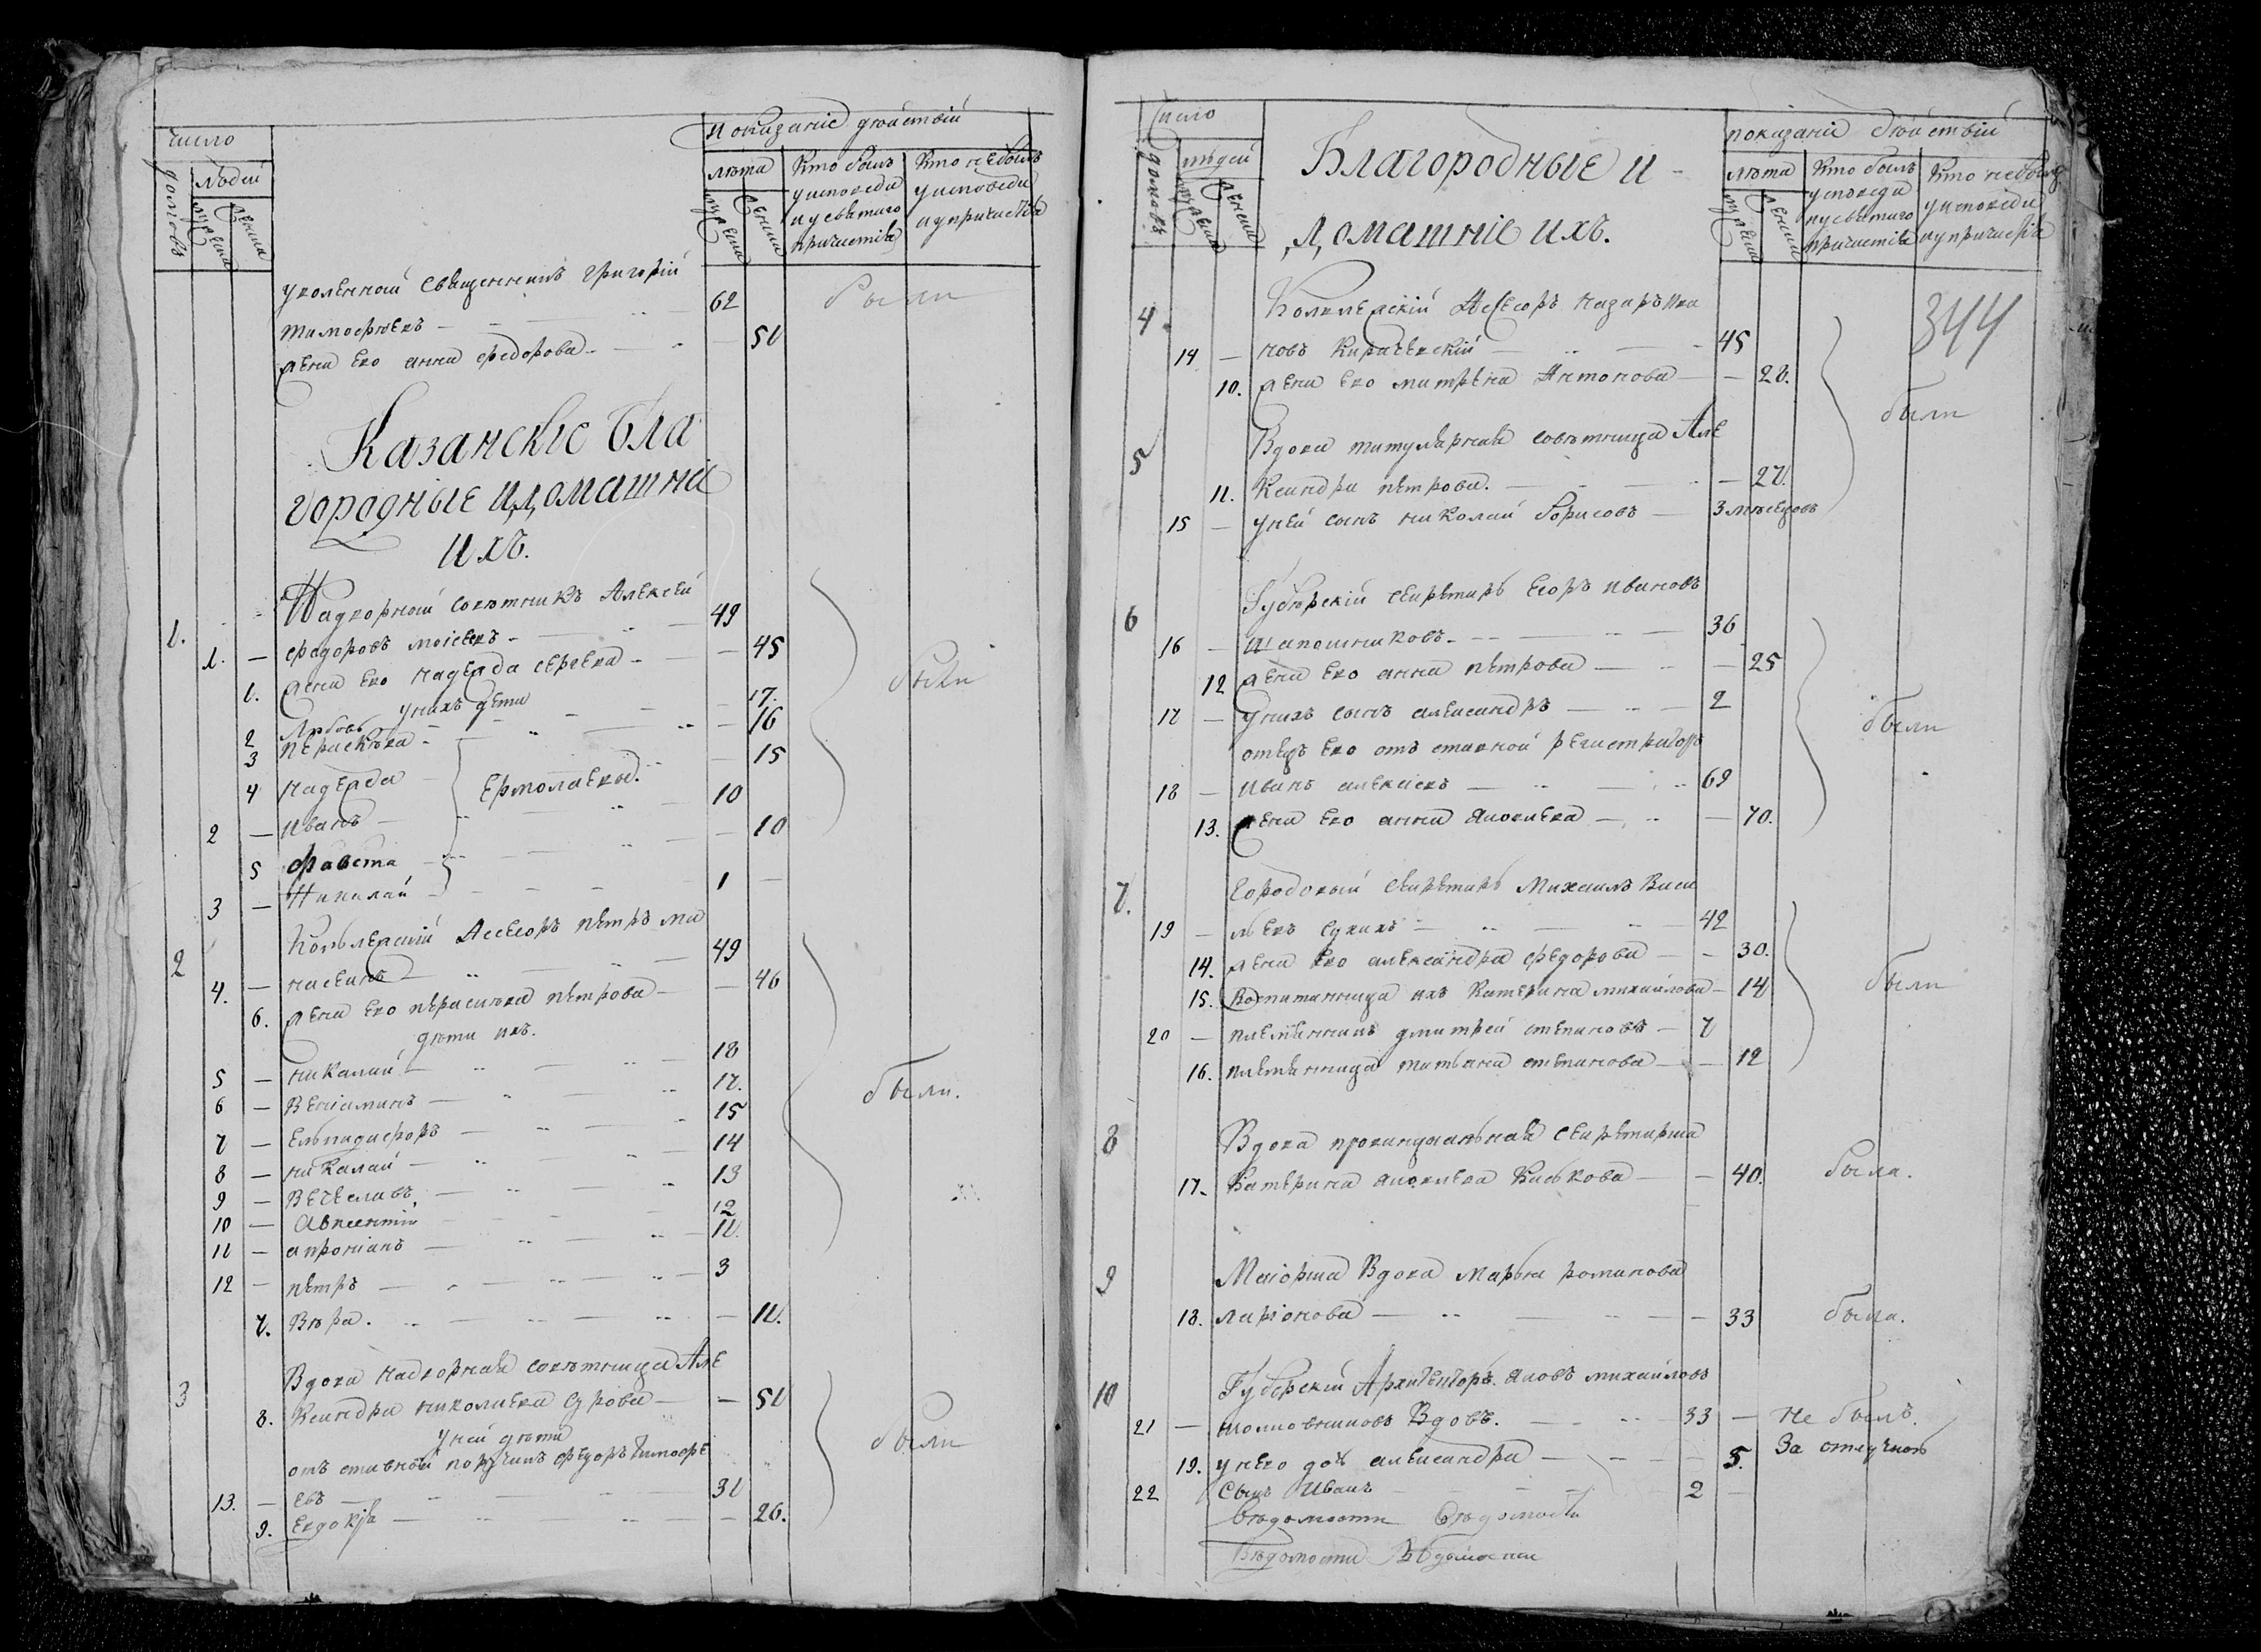 число
Показание действий
домовъ
людей
мужеска
женска
лета
мужеска
женска
Кто былъ
у исповеди
и у святаго
причастия
Кто не былъ
у исповеди
и у причастия
Уволенной Священникъ Григорий
Тимофеевъ — 62 были
жена ево анна федорова — 51
Казанские бла
городные и домашние
ихъ.
1. Надворной Советникъ Алексей
1. — федоровъ — 49
1. жена ево надежда сергеева — 45
у нихъ дети
2 Любовь — 17.
3 Параскева — 16
4 Надежда — 15
Ермолаевы.
2 — Иванъ — 10
5 — 10
3 — Николай — 1
были
2 Колежский Ассесоръ Петръ ма
4. — 49
6. жена ево параскева петрова — 46
дети ихъ.
5 — николай — 18
6 — Вениаминъ — 17.
7 — Елпидифоръ — 15
8 — николай — 14
9 — Вечеславъ — 13
10 — Авксентий — 12
11 — апронианъ — 11.
12 — петръ — 3
7. Вера. — 11.
были.
3 Вдова надворная советница Але
8. ксандра николаева Сурова — 51
у ней дети
отъ ставной поручикъ федоръ Тимофе
13. — евъ — 31
9. Евдокия — 26.
были
число
домовъ
людей
мужеска
женска
Благородные и
домашние ихъ.
показание действий
лета
мужеска
женска
Кто былъ
у исповеди
и у святаго
причастия
Кто не былъ
у исповеди
и у причастия
344
4 Колежский Асесоръ назаръ Ива
14 — новъ — 45
10. жена ево матрена Антонова — 28.
5 Вдова титулярная советница Але
11. ксандра петрова. — 27.
15 — у ней сынъ николай борисовъ — 3 месецовъ
были
6 Губерский секретарь Егоръ Ивановъ
16 — шапошниковъ — 36
12 жена ево анна петрова — 25
17 — у нихъ сынъ александръ — 2
отецъ ево отъ ставной регистраторъ
18 — иванъ алексеевъ — 69
13. жена ево анна яковлева — 70.
были
7. Городовый секретарь Михаилъ Васи
19 — льевъ — 42
14. жена ево александра федорова — 30.
15. Воспитанница ихъ катерина михайлова — 14
20 — племянникъ дмитрей степановъ — 7
16. племянница татьяна степанова — 12
были
8 Вдова провинциальная секретарша
17. Катерина яковлева — 40. была.
9 Маиорша Вдова Марья романова
18. ларионова — 33 была.
10 Губерский Архитекторъ. яковъ михайловъ
21 — шолковниковъ Вдовъ. — 33 — не былъ.
19. у нево дочь александра — 5. За отлучкою
22 Сынъ Иванъ — 2
Ведомости Ведомости
Ведомости Ведомости